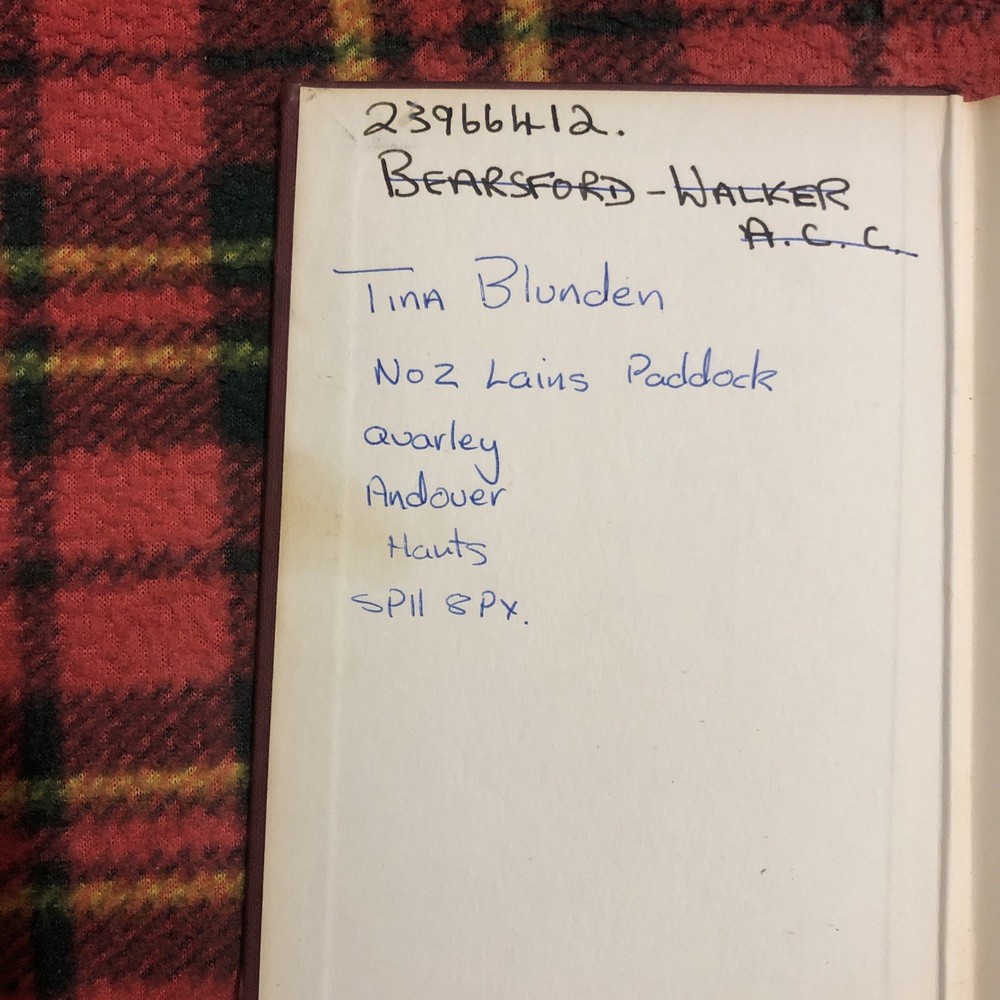 23966412.
BEARSFORD-WALKER
A.C.C.
Tina Blunden
No2 Lains Paddock
Quarley
Andover
Hants
SP11 8PX.